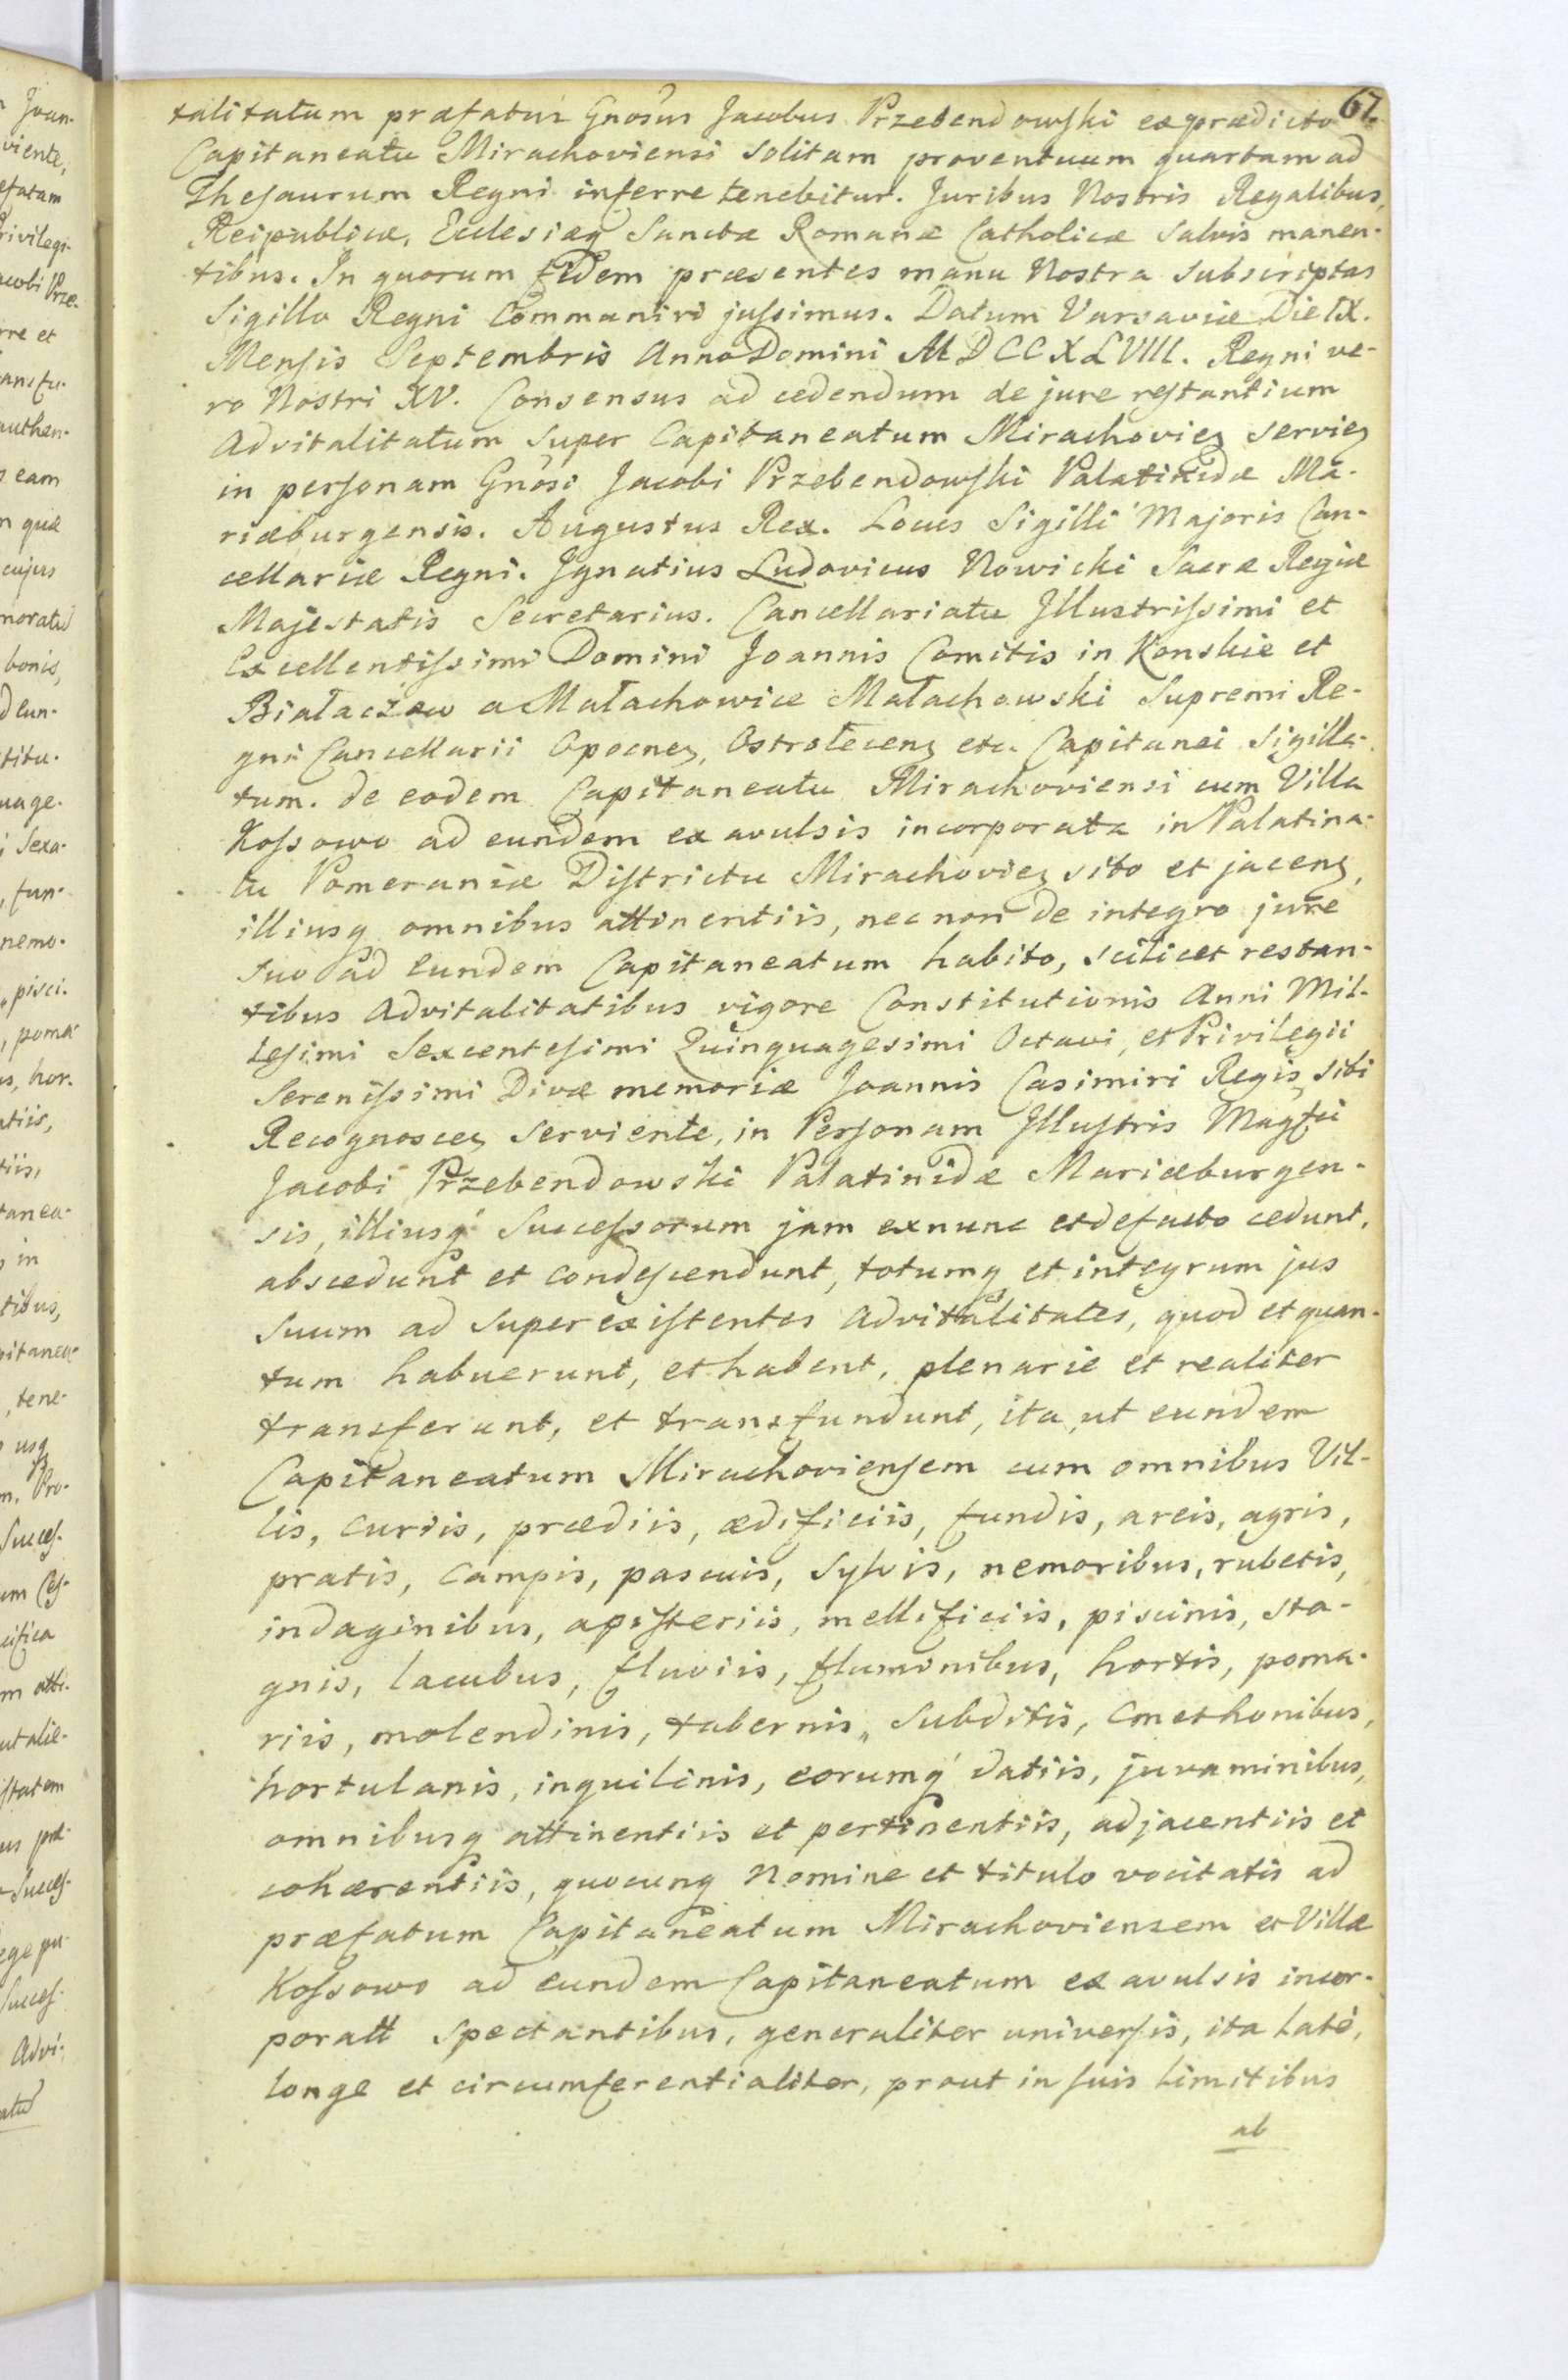 67.
talitatum præfatus Gnosus Jacobus Przebendowski ex prædicto
Capitaneatu Mirachoviensi solitam proventuum quartam ad
Thesaurum Regni inferre tenebitur. Juribus Nostris Regalibus,
Reipublicæ, Ecclesiæq Sanctæ Romanæ Catholicæ Salvis manen-
tibus. In quorum fidem præsentes manu Nostra subscriptas
Sigillo Regni Communiri jussimus. Datum Varsaviæ Die IX.
Mensis Septembris Anno Domini MDCCXLVIII. Regni ve-
ro Nostri XV. Consensus ad cedendum de jure restantium
Advitalitatum super Capitaneatum Mirachovien servien
in personam Gnosi Jacobi Przebendowski Palatinidæ Ma-
riæburgensis. Augustus Rex. Locus Sigilli Majoris Can-
cellariæ Regni. Ignatius Ludovicus Nowicki Sacræ Regiæ
Majestatis Secretarius. Cancellariatu Illustrissimi et
Excellentissimi Domini Joannis Comitis in Konskie et
Białaczew a Małachowice Małachowski Supremi Re-
gni Cancellarii Opocnen, Ostrołecen etc. Capitanei Sigilla-
tum. de eodem Capitaneatu Mirachoviensi cum Villa
Kossowo ad eundem ex avulsis incorporata in Palatina-
tu Pomeraniæ Districtu Mirachovien sito et jacen,
illiusq omnibus attinentiis, nec non de integro jure
suo ad eundem Capitaneatum habito, scilicet restan-
tibus Advitalitatibus vigore Constitutionis Anni Mil-
lesimi Sexcentesimi Quinquagesimi Octavi, et Privilegii
Serenissimi Divæ memoriæ Joannis Casimiri Regis, sibi
Recognoscen serviente, in Personam Illustris Magfci
Jacobi Przebendowski Palatinidæ Mariæburgen-
sis, illiusq Successorum jam exnunc et defacto cedunt,
abscedunt et condescendunt, totumq et integrum jus
suum ad superexistentes advitalitates, quod et quan-
tum habuerunt, et habent, plenarie et realiter
transferunt, et transfundunt, ita, ut eundem
Capitaneatum Mirachoviensem cum omnibus Vil-
lis, curiis, prædiis, ædificiis, fundis, areis, agris,
pratis, campis, pascuis, sylvis, nemoribus, rubetis,
indaginibus, apisteriis, mellificiis, piscinis, sta-
gnis, lacubus, fluviis, fluminibus, hortis, poma-
riis, molendinis, tabernis, subditis, cmethonibus,
hortulanis, inquilinis, eorumq datiis, juvaminibus,
omnibusq attinentiis et pertinentiis, adjacentiis et
cohærentiis, quocunq Nomine et titulo vocitatis ad
præfatum Capitaneatum Mirachoviensem et Villæ
Kossowo ad eundem Capitaneatum ex avulsis incor-
poratt spectantibus, generaliter universis, ita late,
longe et circumferentialiter, prout in suis limitibus
ab